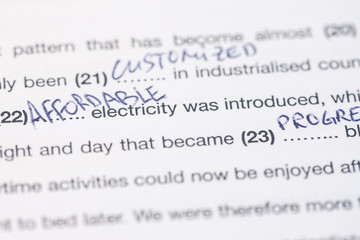 pattern that has become almost (20)
been (21) CUSTOMIZED ......... in industrialised coun
22) AFFORDABLE ......... electricity was introduced, whi
ight and day that became (23) PROGRE .......... bl
time activities could now be enjoyed aft
to bed later. We were therefore more